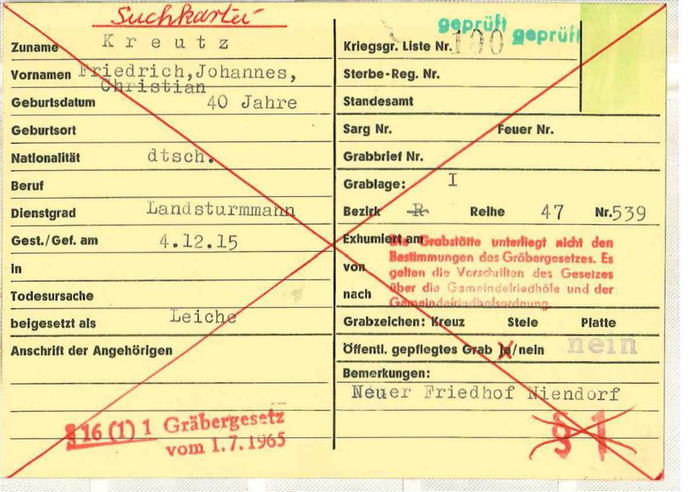 Suchkartei
Zuname Kreutz
Vornamen Friedrich, Johannes,
Christian
Geburtsdatum 40 Jahre
Geburtsort
Nationalität dtsch.
Beruf
Dienstgrad Landsturmmann
Gest./Gef. am 4.12.15
in
Todesursache
beigesetzt als Leiche
Anschrift der Angehörigen
§ 16 (1) 1 Gräbergesetz
vom 1.7.1965
geprüft geprüft
Kriegsgr. Liste Nr. 100
Sterbe-Reg. Nr.
Standesamt
Sarg Nr. Feuer Nr.
Grabbrief Nr.
Grablage: I
Bezirk R Reihe 47 Nr. 539
Exhumiert am
von
nach
Die Grabstätte unterliegt nicht den
Bestimmungen des Gräbergesetzes. Es
gelten die Vorschriften des Gesetzes
über die Gemeindefriedhöfe und der
Gemeindefriedhofsordnung.
Grabzeichen: Kreuz Stele Platte
Öffentl. gepflegtes Grab ja/nein nein
Bemerkungen:
Neuer Friedhof Niendorf
§ 1